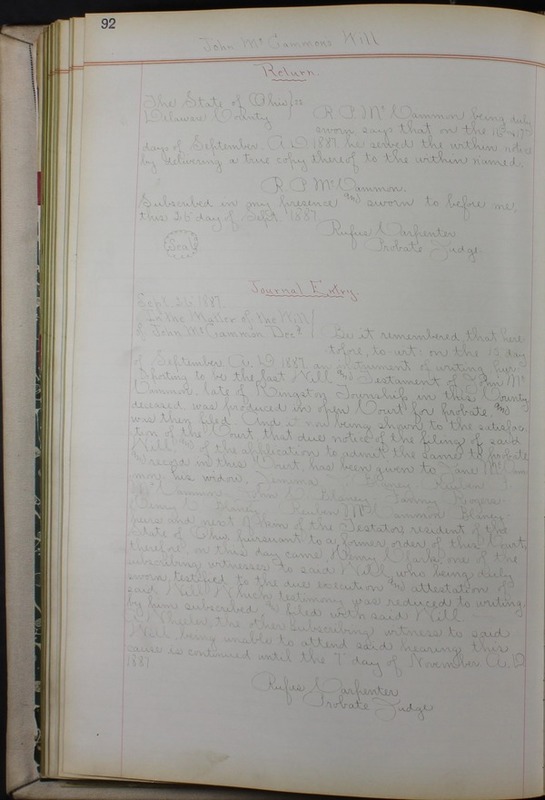 92
John McCammons Will
Return.
The State of Ohio } ss
Delaware County R. P. McCammon being duly
sworn says that on the 16 & 17
days of September A.D 1887 he served the within notice
by delivering a true copy thereof to the within named.
R. P. McCammon.
Subscribed in my presence and sworn to before me,
this 26 day of Sept. 1887
Rufus Carpenter
Seal
Probate Judge
Journal Entry.
Sept 26 1887.
In the Matter of the Will
of John McCammon Decd Be it remembered that here
tofore, to wit: on the 15 day
of September A.D 1887 an instrument of writing pur-
porting to be the last Will and Testament of John Mc
Cammon, late of Kingston Township in this County
deceased was produced in open Court for probate, and
was then filed. And it now being shown to the satisfac
tion of the Court that due notice of the filing of said
Will, and of the application to admit the same to probate
and record in this Court has been given to Jane McCam
mon his widow, Jemima Blaney, Reuben
McCammon, John Blaney, Fanny Rogers
Blaney, Reuben McCammon Blaney
heirs and next of kin of the Testator resident of the
State of Ohio pursuant to a former order of this Court,
therefore, on this day came Henry Clark one of the
subscribing witnesses to said Will, who being duly
sworn, testified to the due execution and attestation of
said Will, which testimony was reduced to writing
by him subscribed, & filed with said Will
Wheeler, the other subscribing witness to said
Will being unable to attend said hearing this
cause is continued until the 7" day of November A.D
1887
Rufus Carpenter
Probate Judge